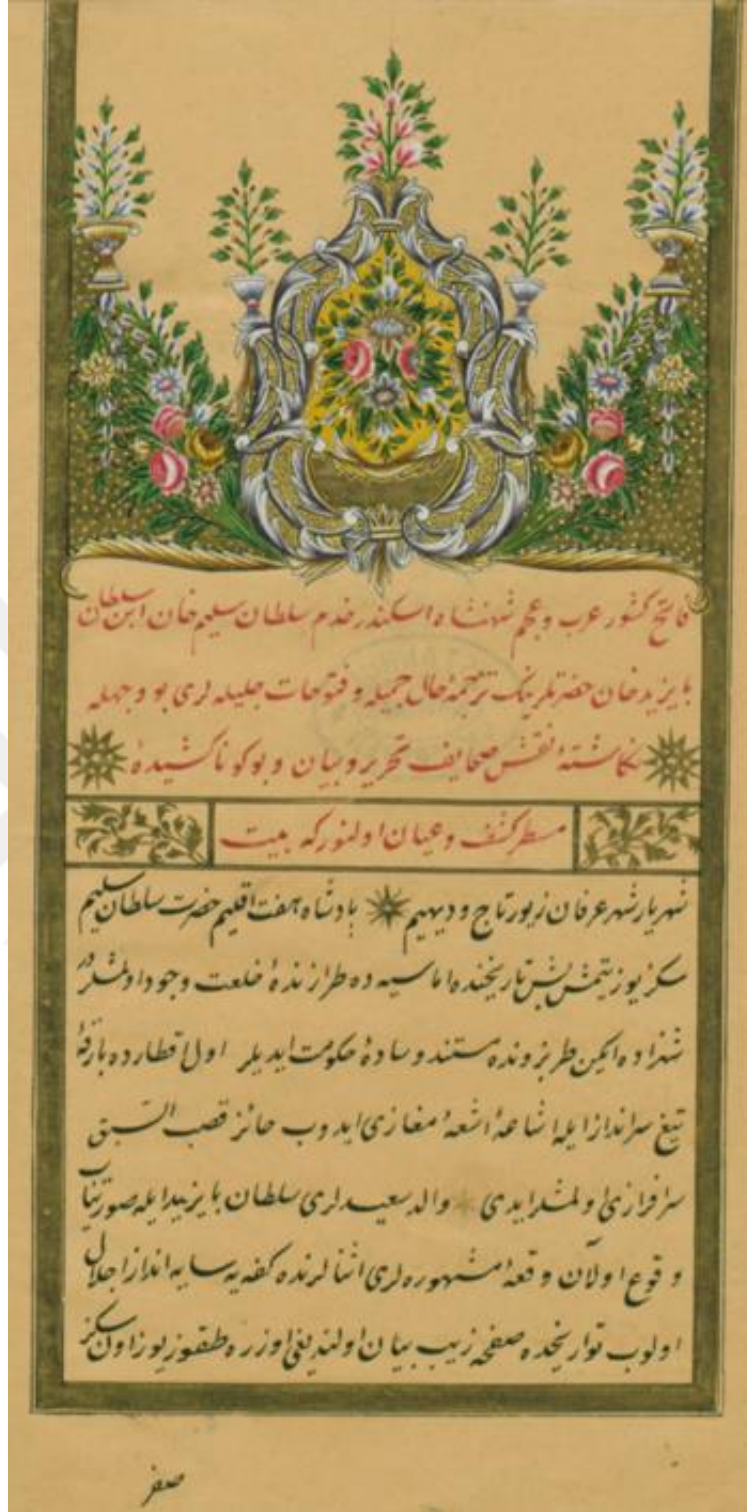 فاتح كشور عرب و عجم شهنشاه اسكندر خدم سلطان سليم خان ابن سلطان
بايزيد خان حضرتلرينك ترجمهٔ حال جميله و فتوحات جليله لرى بو وجهله
نكاشتهٔ نقش صحايف تحرير و بيان و بو كونا كشيدهٔ
مسطر كشف و عيان اولنور كه بيت
شهريار شهر عرفان زيور تاج و ديهيم پادشاه هفت اقليم حضرت سلطان سليم
سكز يوز يتمش بش تاريخنده اماسيه ده طرازندهٔ خلعت وجود اولمشلردر
شهزاده ايكن طربزونده مسند و سادهٔ حكومت ايديلر اول اقطارده بارقهٔ
تيغ سرانداز ايله اشاعهٔ اشعهٔ مغازى ايدوب حائز قصب السبق
سرافرازى اولمشلر ايدى والد سعيدلرى سلطان بايزيد ايله صورتياب
وقوع اولان وقعهٔ مشهوره لرى اثنالرنده كفه يه سايه انداز اجلال
اولوب تواريخده صفحه زيب بيان اولنديغى اوزره طقوز يوز اون سكز
صفر